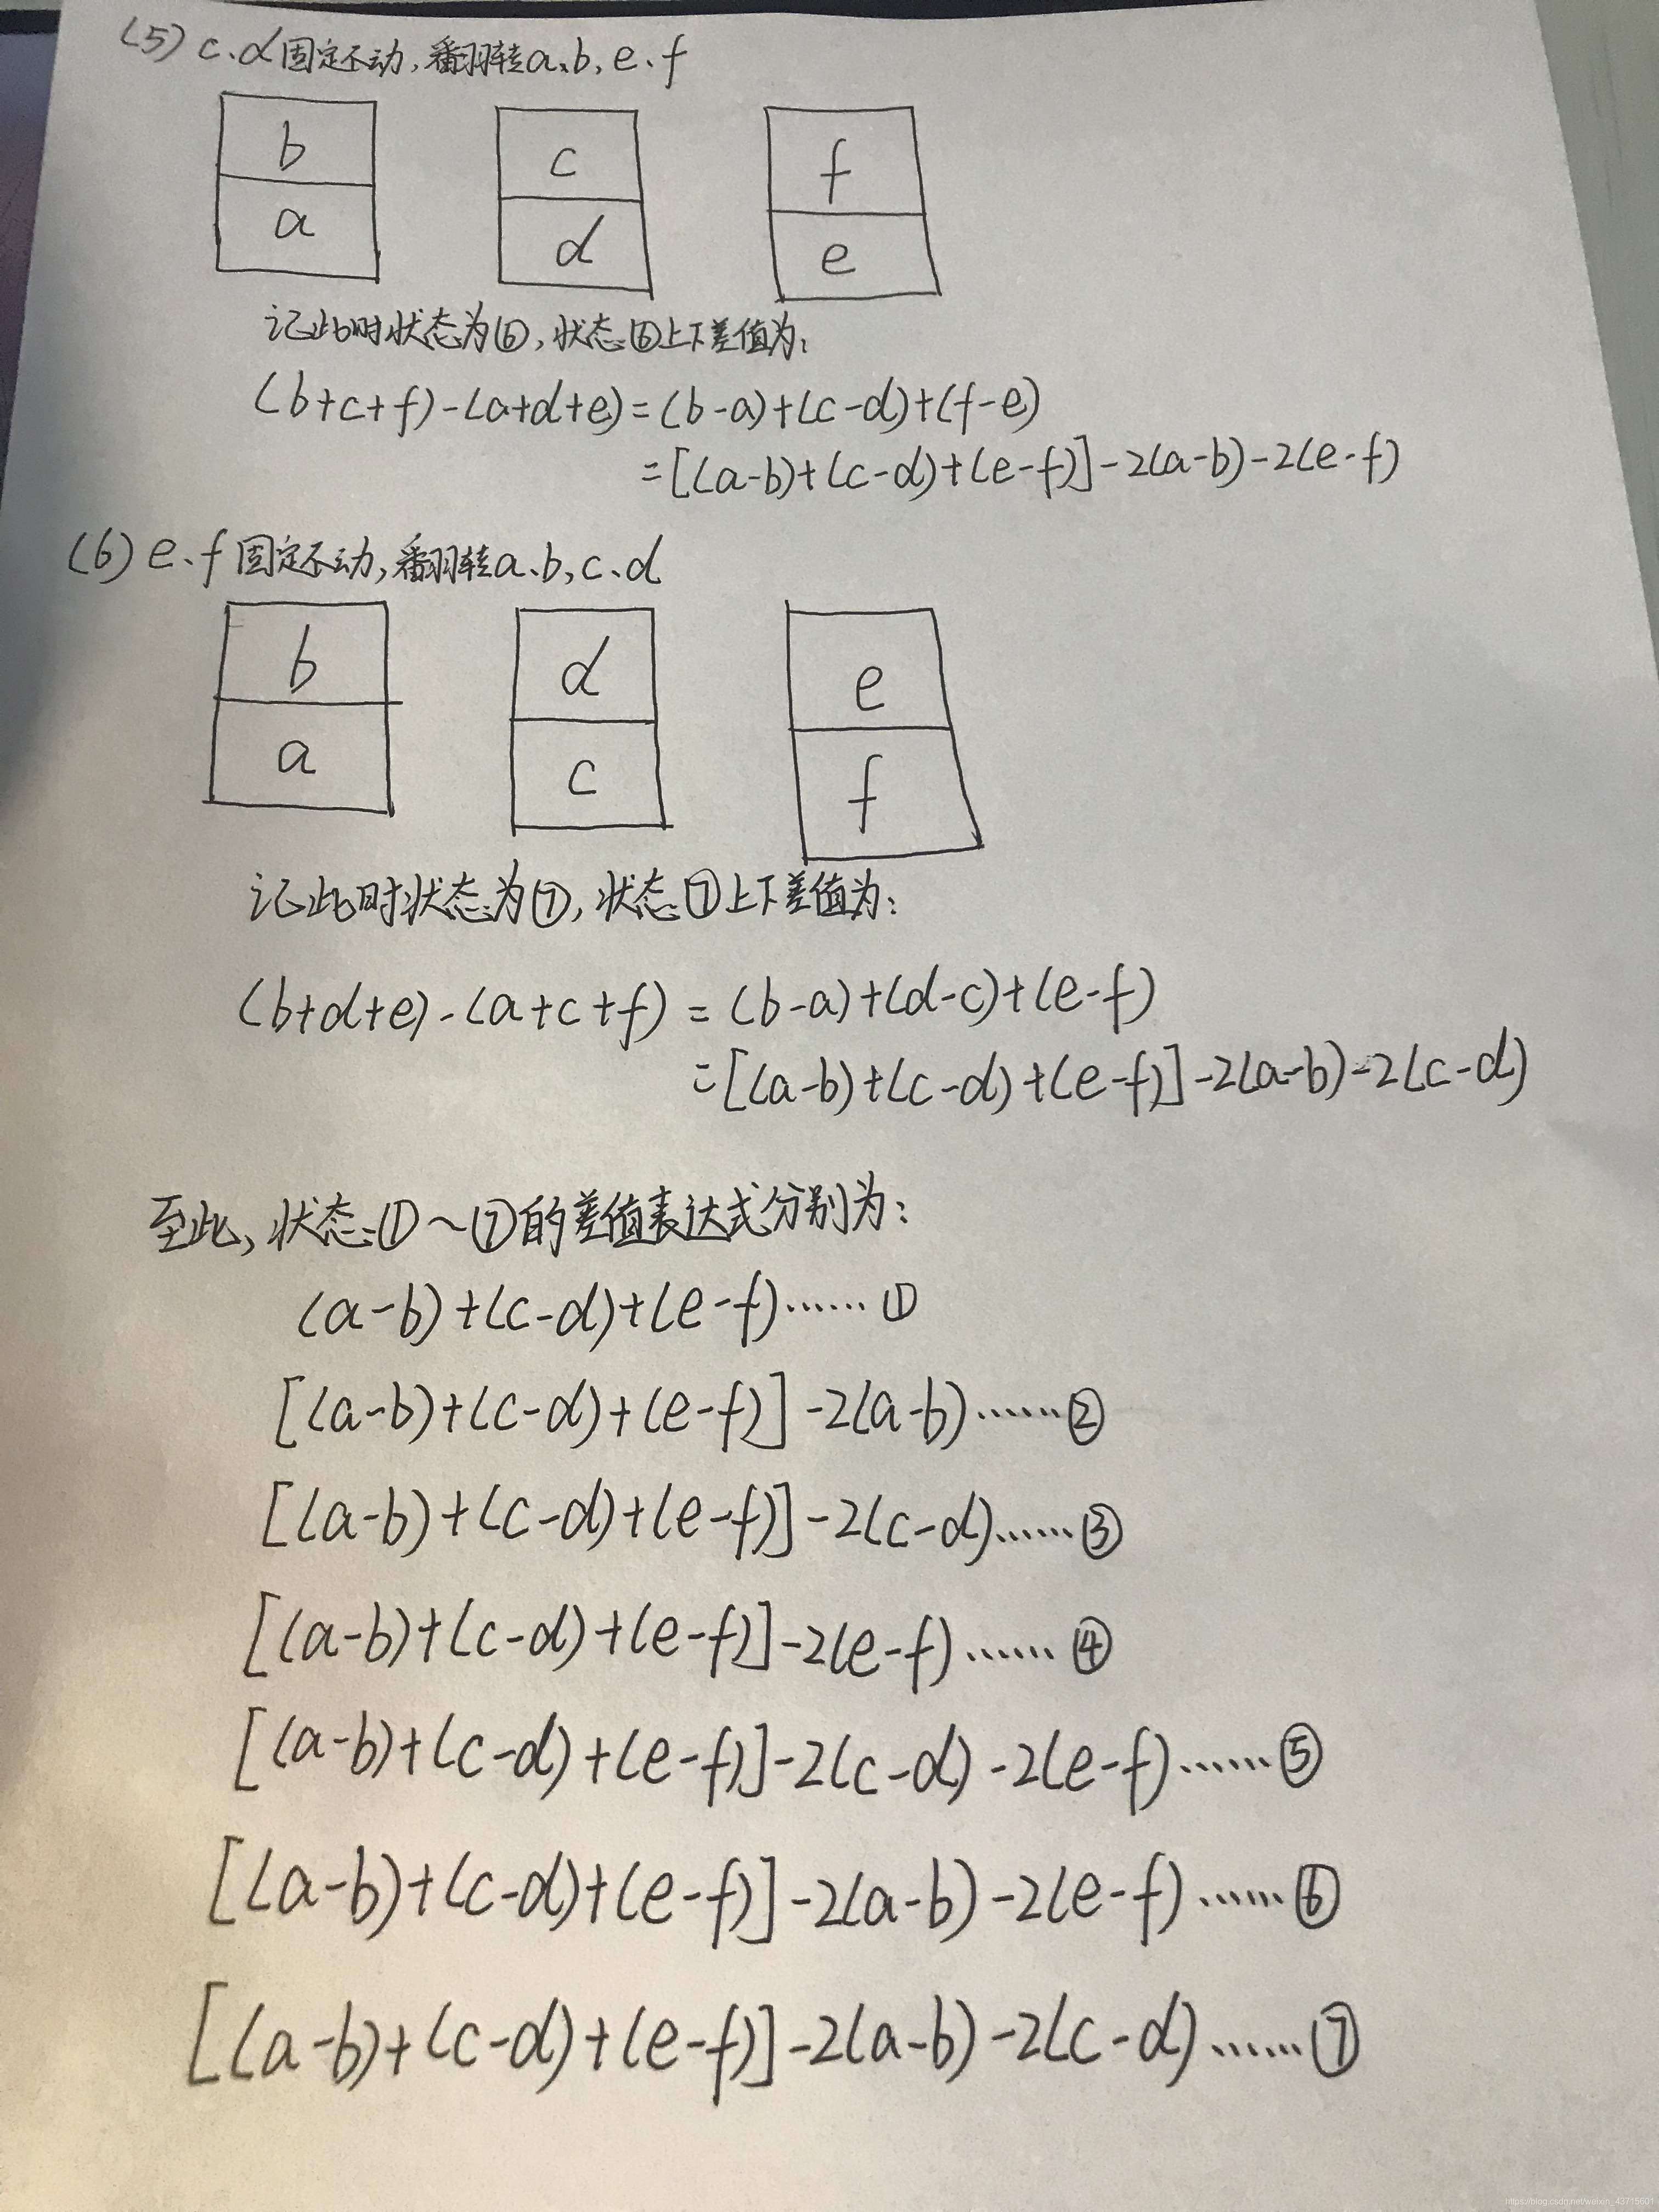 (5) c、d固定不动,翻转a、b,e、f
b c f
a d e
记此时状态为⑥,状态⑥上下差值为:
(b+c+f)-(a+d+e)=(b-a)+(c-d)+(f-e)
=[(a-b)+(c-d)+(e-f)]-2(a-b)-2(e-f)
(6) e、f固定不动,翻转a、b,c、d
b d e
a c f
记此时状态为⑦,状态⑦上下差值为:
(b+d+e)-(a+c+f)=(b-a)+(d-c)+(e-f)
=[(a-b)+(c-d)+(e-f)]-2(a-b)-2(c-d)
至此,状态①~⑦的差值表达式分别为:
(a-b)+(c-d)+(e-f)……①
[(a-b)+(c-d)+(e-f)]-2(a-b)……②
[(a-b)+(c-d)+(e-f)]-2(c-d)……③
[(a-b)+(c-d)+(e-f)]-2(e-f)……④
[(a-b)+(c-d)+(e-f)]-2(c-d)-2(e-f)……⑤
[(a-b)+(c-d)+(e-f)]-2(a-b)-2(e-f)……⑥
[(a-b)+(c-d)+(e-f)]-2(a-b)-2(c-d)……⑦
https://blog.csdn.net/weixin_43715601